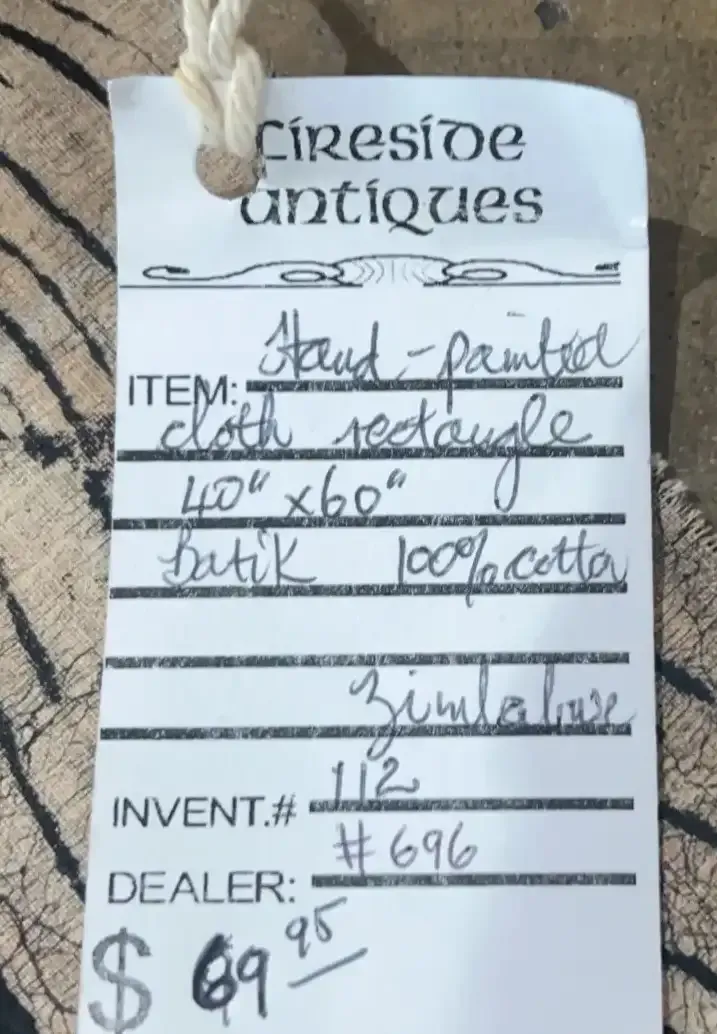 Fireside
Antiques
ITEM: Hand-painted
cloth rectangle
40" x60"
Batik 100% cotton
Zimbabwe
INVENT.# 112
DEALER: #696
$ 69 95